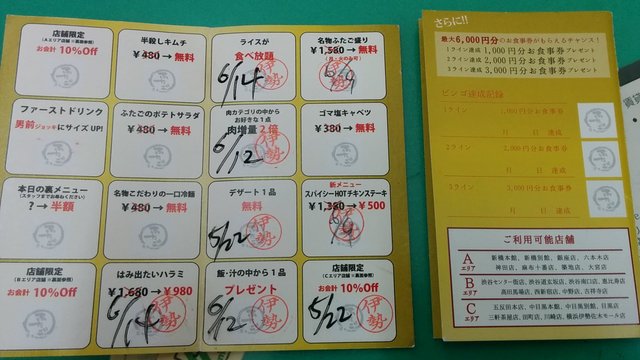 店舗限定
(Aエリア店舗 ※裏面参照)
お会計 10%Off
半殺しキムチ
¥480→無料
ライスが
食べ放題
6/14
伊勢
名物ふたご盛り
¥1,580→無料
(月・火のみ可)
6/9
ファーストドリンク
男前ジョッキにサイズUP!
ふたごのポテトサラダ
¥480→無料
肉カテゴリの中から
お好きな1点
肉増量2倍
6/12
伊勢
ゴマ塩キャベツ
¥380→無料
本日の裏メニュー
(スタッフまでお尋ねください)
?→半額
名物こだわりの一口冷麺
¥480→無料
デザート1品
無料
5/22
伊勢
新メニュー
スパイシーHOTチキンステーキ
¥1,380→¥500
6/9
店舗限定
(Bエリア店舗 ※裏面参照)
お会計 10%Off
はみ出たいハラミ
¥1,680→¥980
6/14
伊勢
飯・汁の中から1品
プレゼント
6/12
伊勢
店舗限定
お会計 10%Off
5/22
伊勢
さらに!!
最大6,000円分のお食事券がもらえるチャンス!
1ライン達成 1,000円分お食事券プレゼント
2ライン達成 2,000円分お食事券プレゼント
3ライン達成 3,000円分お食事券プレゼント
ビンゴ達成記録
1ライン 1,000円分お食事券
月 日 達成
2ライン 2,000円分お食事券
月 日 達成
3ライン 3,000円分お食事券
月 日 達成
ご利用可能店舗
A エリア
新橋本館、新橋別館、銀座店、六本木店
神田店、麻布十番店、築地店、大宮店
B エリア
渋谷センター街店、渋谷道玄坂店、渋谷南口店、恵比寿店
高田馬場店、西新宿店、中野店、吉祥寺店
C エリア
五反田本店、中目黒本館、中目黒別館、目黒店
三軒茶屋店、田町店、川崎店、横浜伊勢佐木モール店